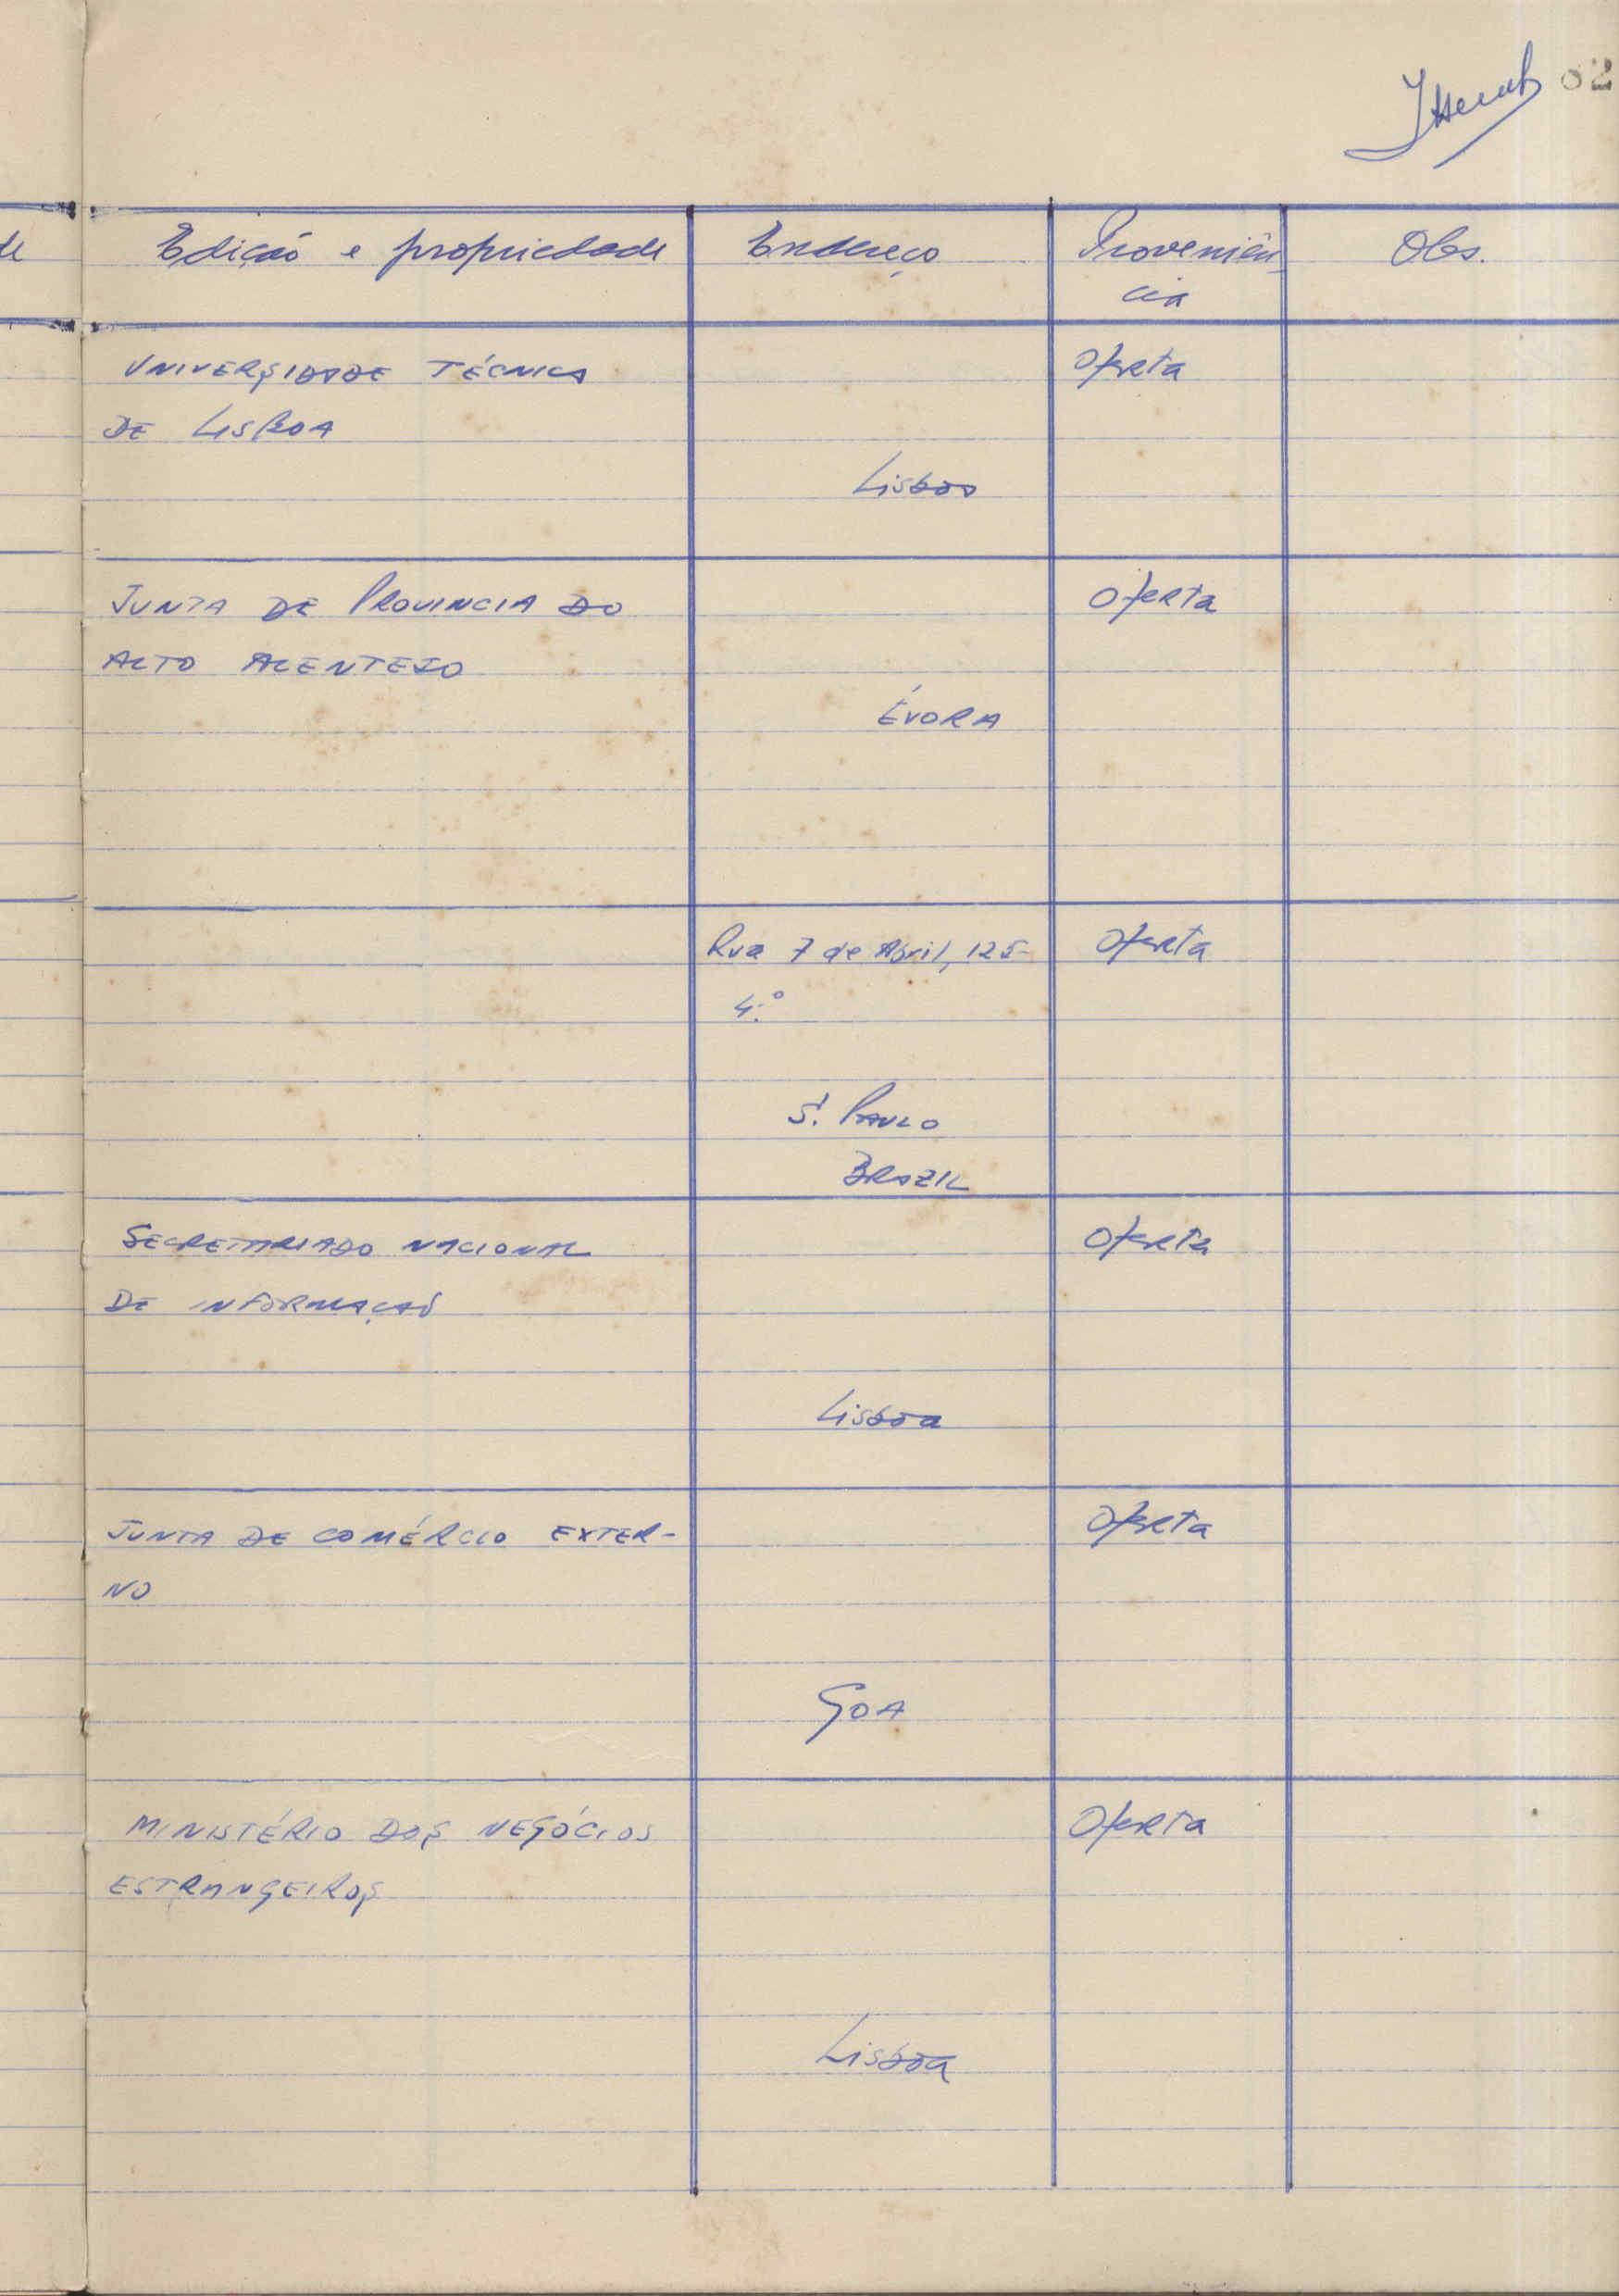 02
de
Edição e propriedade Endereço Proveniên-
cia Obs.
UNIVERSIDADE TÉCNICA Oferta
DE LISBOA
Lisboa
JUNTA DE PROVINCIA DO Oferta
ALTO ALENTEJO
ÉVORA
Rua 7 de Abril, 125- Oferta
4.º
S. PAULO
BRAZIL
SECRETARIADO NACIONAL Oferta
DE INFORMAÇÃO
Lisboa
JUNTA DE COMÉRCIO EXTER- Oferta
NO
GOA
MINISTÉRIO DOS NEGÓCIOS Oferta
ESTRANGEIROS
Lisboa